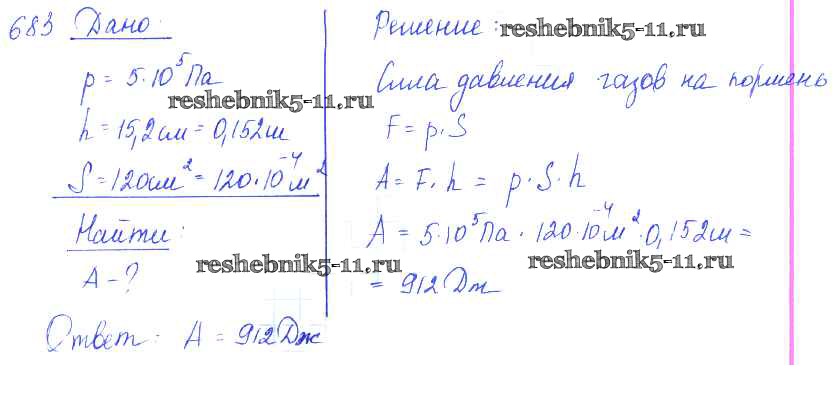 683 Дано:
p = 5·10⁵Па
reshebnik5-11.ru
h = 15,2см = 0,152м
S = 120см² = 120·10⁻⁴м²
Найти:
reshebnik5-11.ru
A - ?
Решение: reshebnik5-11.ru
Сила давления газов на поршень
F = p·S
A = F·h = p·S·h
A = 5·10⁵Па · 120·10⁻⁴м²·0,152м =
reshebnik5-11.ru
= 912Дж
Ответ: A = 912Дж